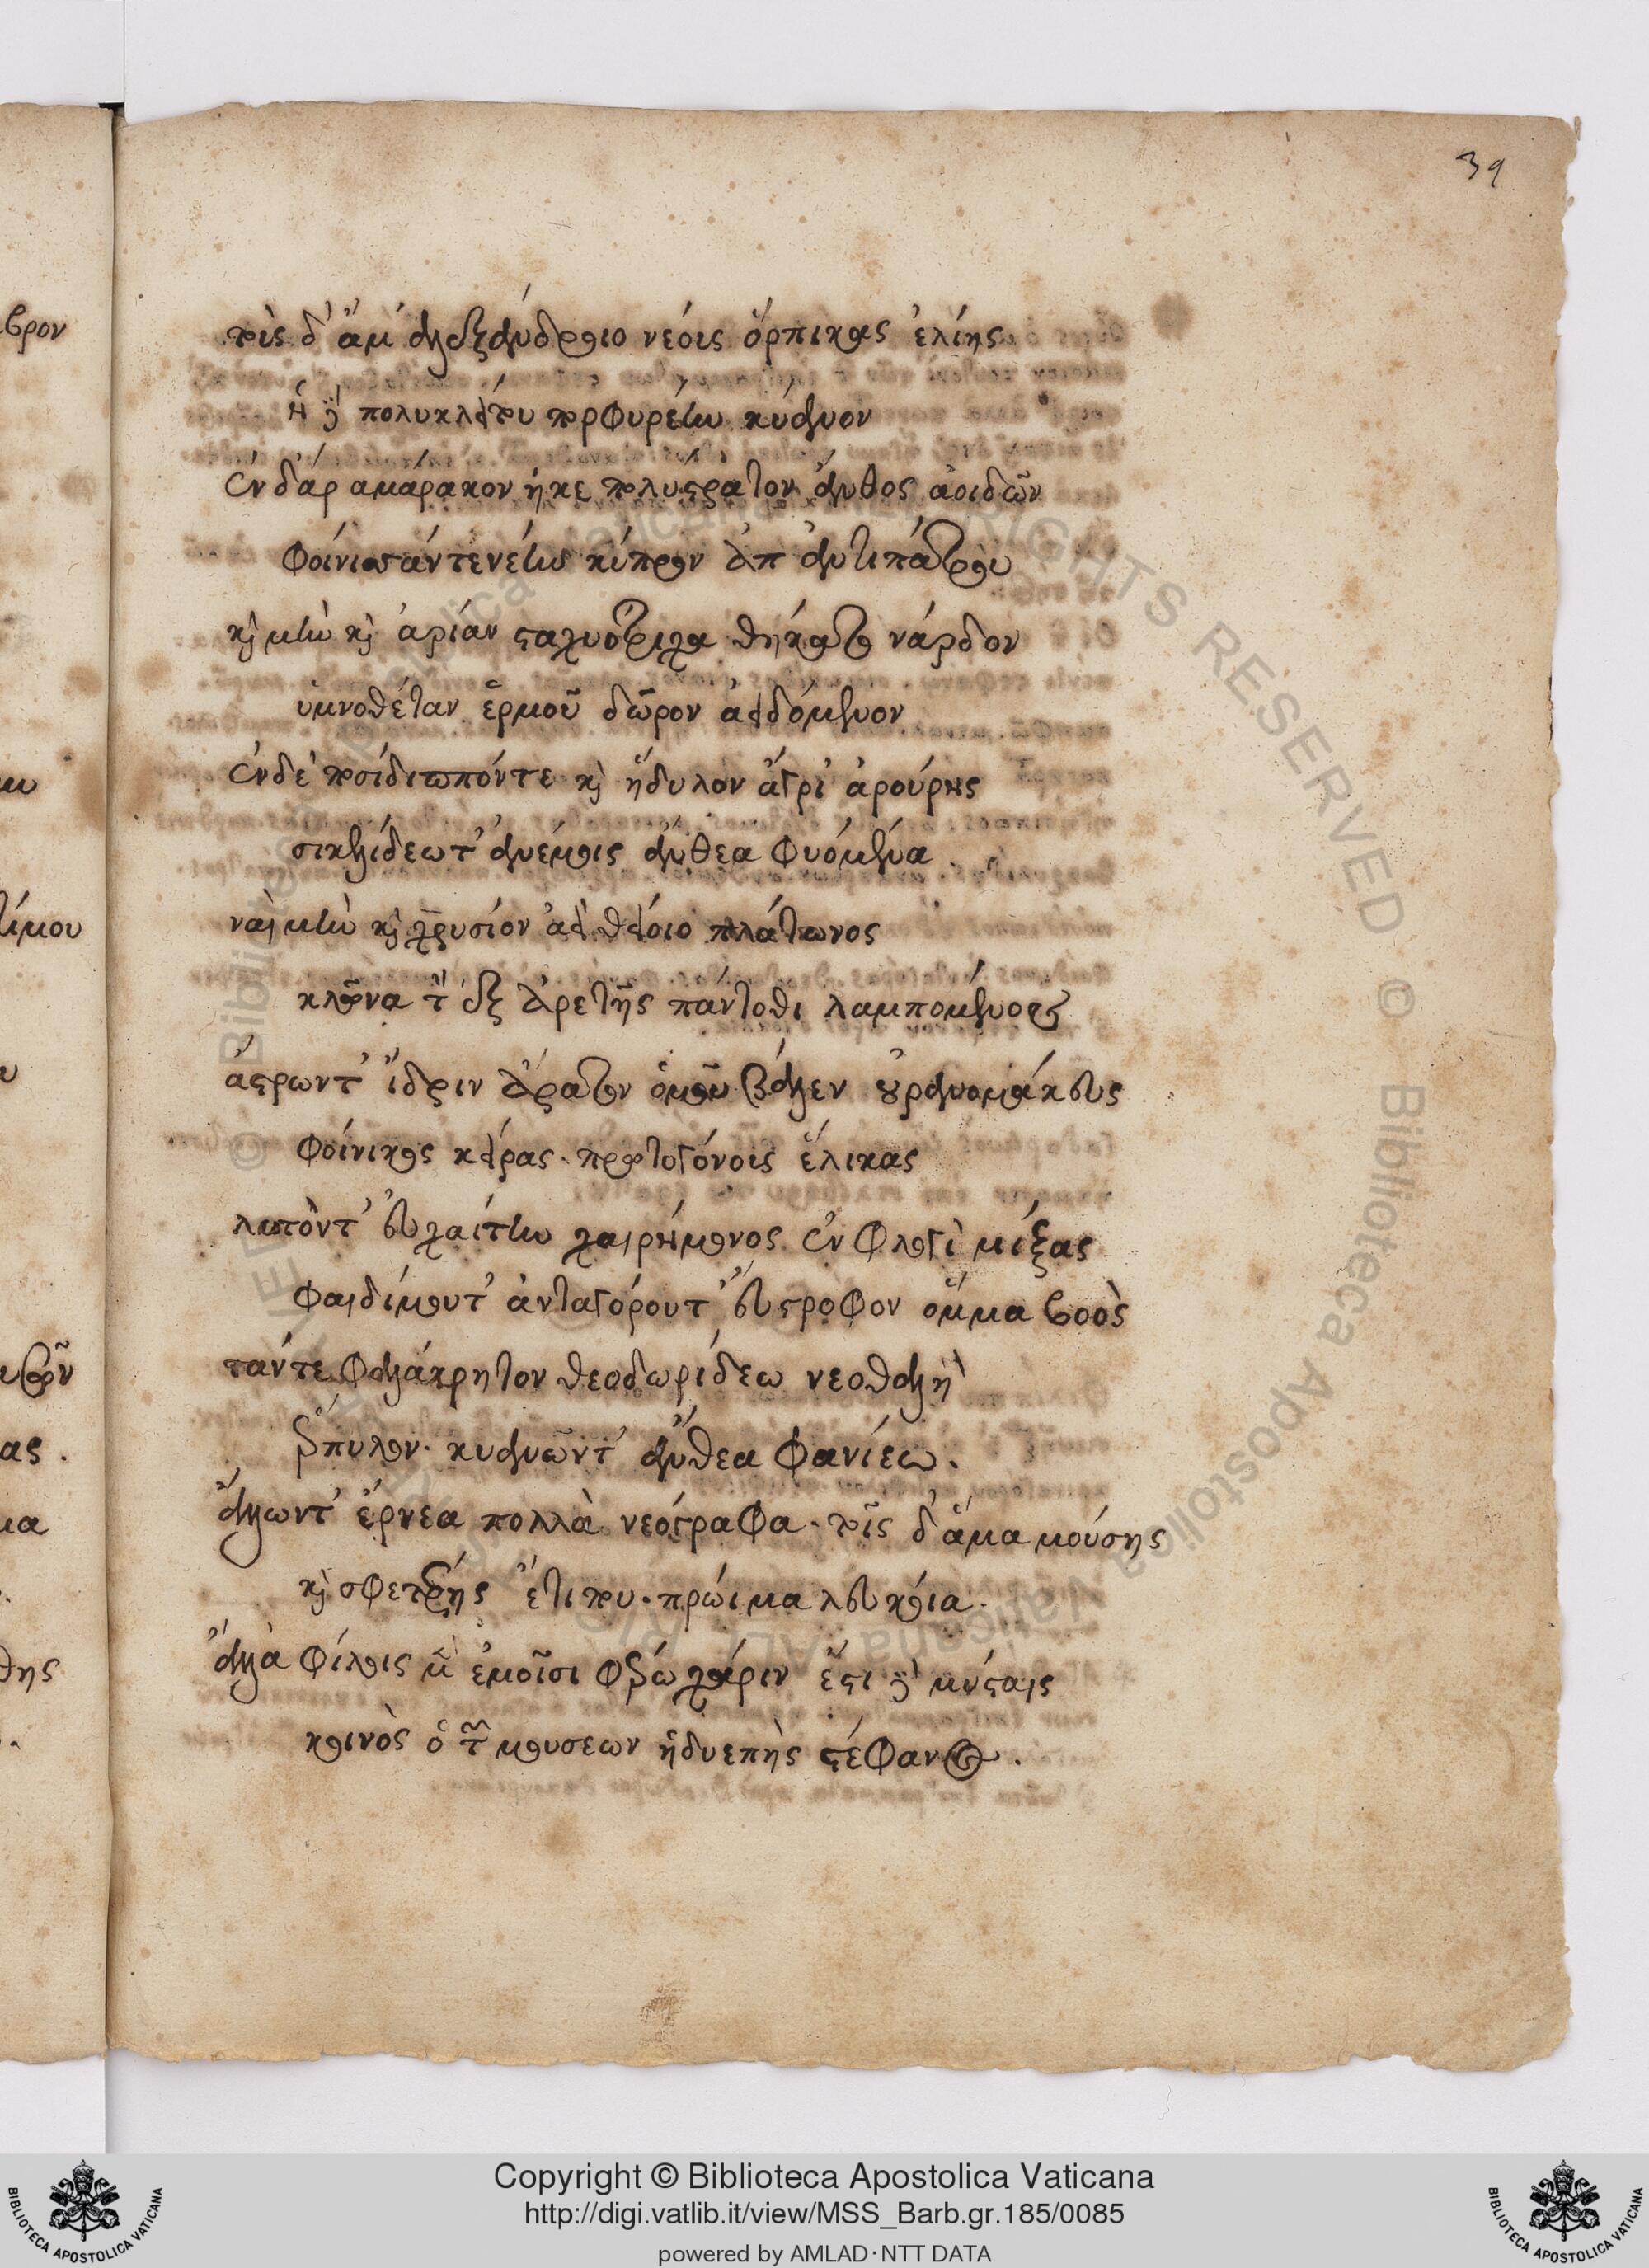 39
τοῖς δ' ἅμ' ἀλεξάνδροιο νέοις ὄρπικας ἐλίης
ἠδὲ πολυκλείτου πορφυρέην κύανον
ἐν δ' ἄρ ἀμάρακον ἧκε πολύστρατον ἄνθος ἀοιδῶν
φοίνισσάν τε νέην κύπρον ἀπ' ἀντιπάτρου
καὶ μὴν καὶ
ὑμνοθέταν ἑρμοῦ δῶρον ἀειδόμενον
ἐν δὲ ποσίδιππόν τε καὶ ἥδυλον ἄγρι' ἀρούρης
σικελίδεώ τ' ἀνέμοις ἄνθεα φυόμενα
ναὶ μὴν καὶ χρυσίον ἀεὶ θείοιο πλάτωνος
κλῶνα τὸν ἐξ ἀρετῆς πάντοθι λαμπομένου
ἄστρων τ' ἴδριν ἄρατον ὁμοῦ βάλεν οὐρανομάκευς
φοίνικος κείρας. πρωτογόνοις ἕλικας
λωτόν τ' εὐχαίτην χαιρήμονος ἐν φλογὶ μίξας
φαιδίμου τ' ἀνταγόρου τ' εὔστροφον ὄμμα βοὸς
τάν τε φιλάκρητον θεοδωρίδεω νεοθαλῆ
ἕρπυλον. κυάνων τ' ἄνθεα φανίεω.
ἄλλων τ' ἔρνεα πολλὰ νεόγραφα. τοῖς δ' ἅμα μούσης
καὶ σφετέρης ἔτι που. πρώιμα λευκόια.
ἀλλὰ φίλοις μὲν ἐμοῖσι φέρω χάριν ἔστι δὲ μύσταις
κοινὸς ὁ τῶν μουσέων ἡδυεπὴς στέφανος.
Copyright © Biblioteca Apostolica Vaticana
http://digi.vatlib.it/view/MSS_Barb.gr.185/0085
powered by AMLAD·NTT DATA
BIBLIOTECA APOSTOLICA VATICANA
BIBLIOTECA APOSTOLICA VATICANA